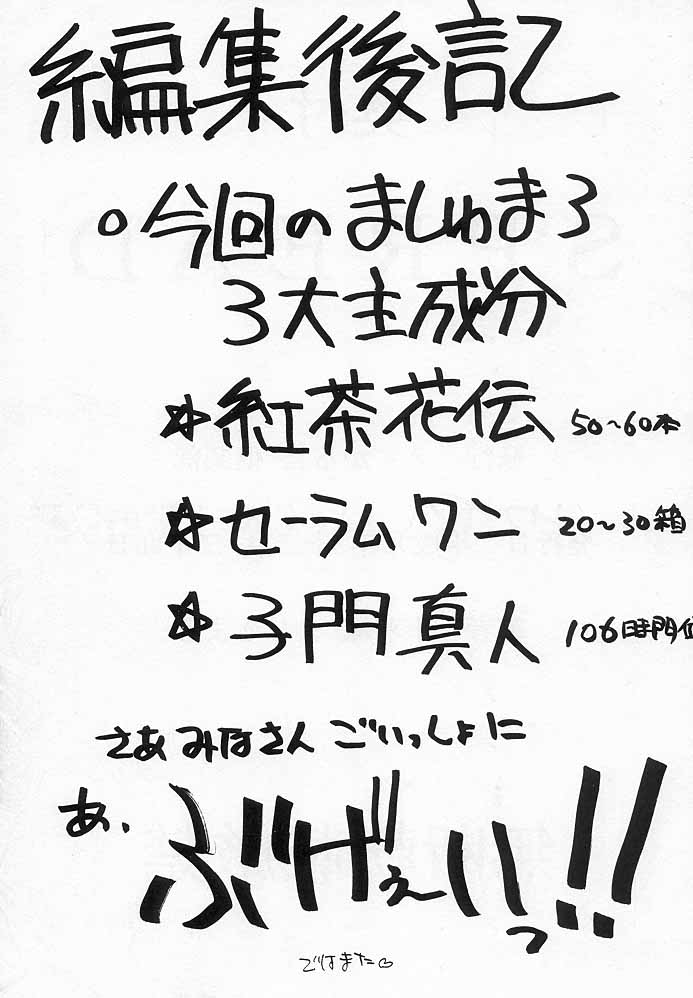 編集後記
○今回のましゅまろ
3大主成分
☆紅茶花伝 50~60本
☆セーラムワン 20~30箱
☆子門真人 106時間位
さあみなさんごいっしょに
あ、
ぶげぇいっ!!
ではまた♡